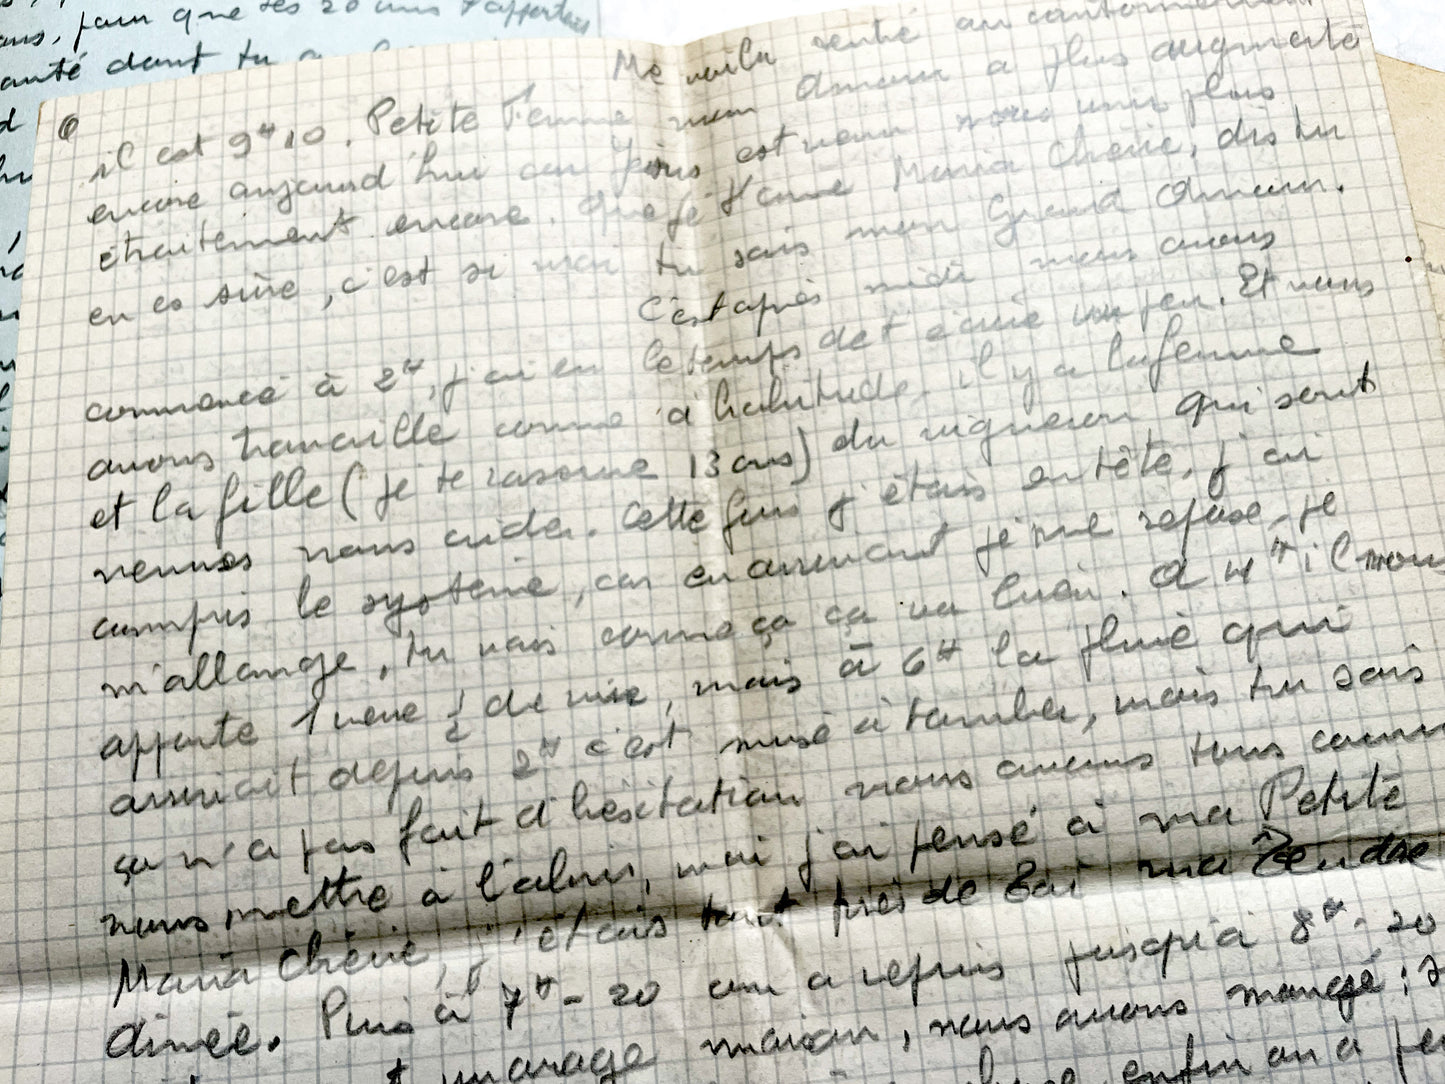 ans, pour que tes 20 ans t'apportes
anté dont tu
6
Me voila rentré au cantonnement
il est 9H10. Petite Femme mon Amour a plus augmenté
encore aujourd'hui un jour est venu nous unir plus
étroitement encore. Que je t'aime Maria Chérie, dis tu
en es sûre, c'est si vrai tu sais mon Grand Amour.
C'est après midi nous avons
commencé à 2H, j'ai eu le temps de t'écrire un peu. Et nous
avons travaillé comme d'habitude. il y a la femme
et la fille (je te rassure 13 ans) du vigneron qui sont
venues nous aider. Cette fois j'étais en tête, j'ai
compris le système, car en arrivant je me repose je
m'allonge, tu vois comme ça ça va bien. A 4H il nous
apporte 1 verre 1/2 de vin, mais à 6H la pluie qui
arrivait depuis 2H c'est mise à tomber, mais tu sais
ça n'a pas fait d'hésitation nous avons tous couru
nous mettre à l'abri, moi j'ai pensé à ma Petite
Maria Chérie, j'étais tout près de Toi ma Tendre
aimée. Puis à 7H-20 on a repris jusqu'à 8H-20
maison, nous avons mangé :
enfin on a